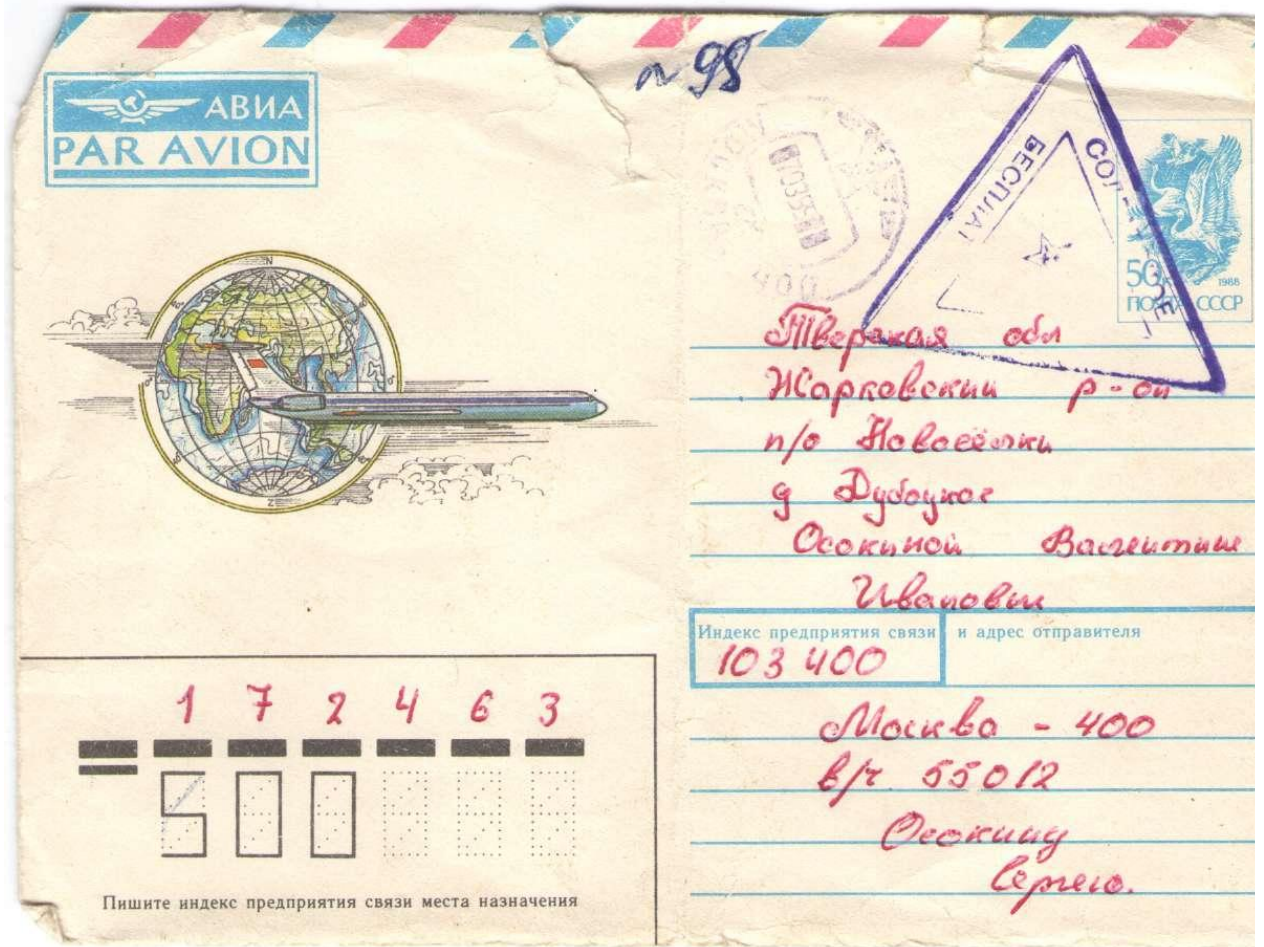 № 98
АВИА
PAR AVION
МОСКВА
400
БЕСПЛАТ
50к 1988
ПОЧТА СССР
Тверская обл
Жарковский р-он
п/о Новосёлки
д Дубоцкое
Осокиной Валентине
Ивановне
Индекс предприятия связи и адрес отправителя
103 400
Москва - 400
в/ч 55012
Осокину
Сергею.
1 7 2 4 6 3
500
Пишите индекс предприятия связи места назначения